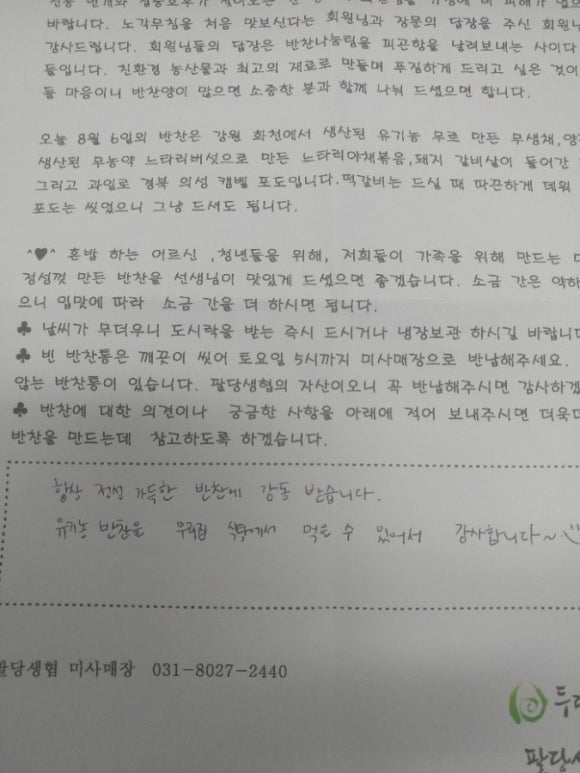 바랍니다. 노각무침을 처음 맛보신다는 회원님과 장문의 답장을 주신 회원님
감사드립니다. 회원님들의 답장은 반찬나눔팀을 피곤함을 날려보내는 사이다
들입니다. 친환경 농산물과 최고의 재료로 만들며 푸짐하게 드리고 싶은 것이
들 마음이니 반찬양이 많으면 소중한 분과 함께 나눠 드셨으면 합니다.
오늘 8월 6일의 반찬은 강원 화천에서 생산된 유기농 무로 만든 무생채,
생산된 무농약 느타리버섯으로 만든 느타리야채볶음,돼지 갈비살이 들어간
그리고 과일로 경북 의성 캠벨 포도입니다.떡갈비는 드실 때 따끈하게 데워
포도는 씻었으니 그냥 드셔도 됩니다.
^♥^ 혼밥 하는 어르신 ,청년들을 위해, 저희들이 가족을 위해 만드는
정성껏 만든 반찬을 선생님이 맛있게 드셨으면 좋겠습니다. 소금 간은 약하
으니 입맛에 따라 소금 간을 더 하시면 됩니다.
♣ 날씨가 무더우니 도시락을 받는 즉시 드시거나 냉장보관 하시길 바랍니다
♣ 빈 반찬통은 깨끗이 씻어 토요일 5시까지 미사매장으로 반납해주세요.
않는 반찬통이 있습니다. 팔당생협의 자산이오니 꼭 반납해주시면 감사하겠
♣ 반찬에 대한 의견이나 궁금한 사항을 아래에 적어 보내주시면 더욱
반찬을 만드는데 참고하도록 하겠습니다.
항상 정성 가득한 반찬에 감동 받습니다.
유기농 반찬을 우리집 식탁에서 먹을 수 있어서 감사합니다~
팔당생협 미사매장 031-8027-2440
두
팔당